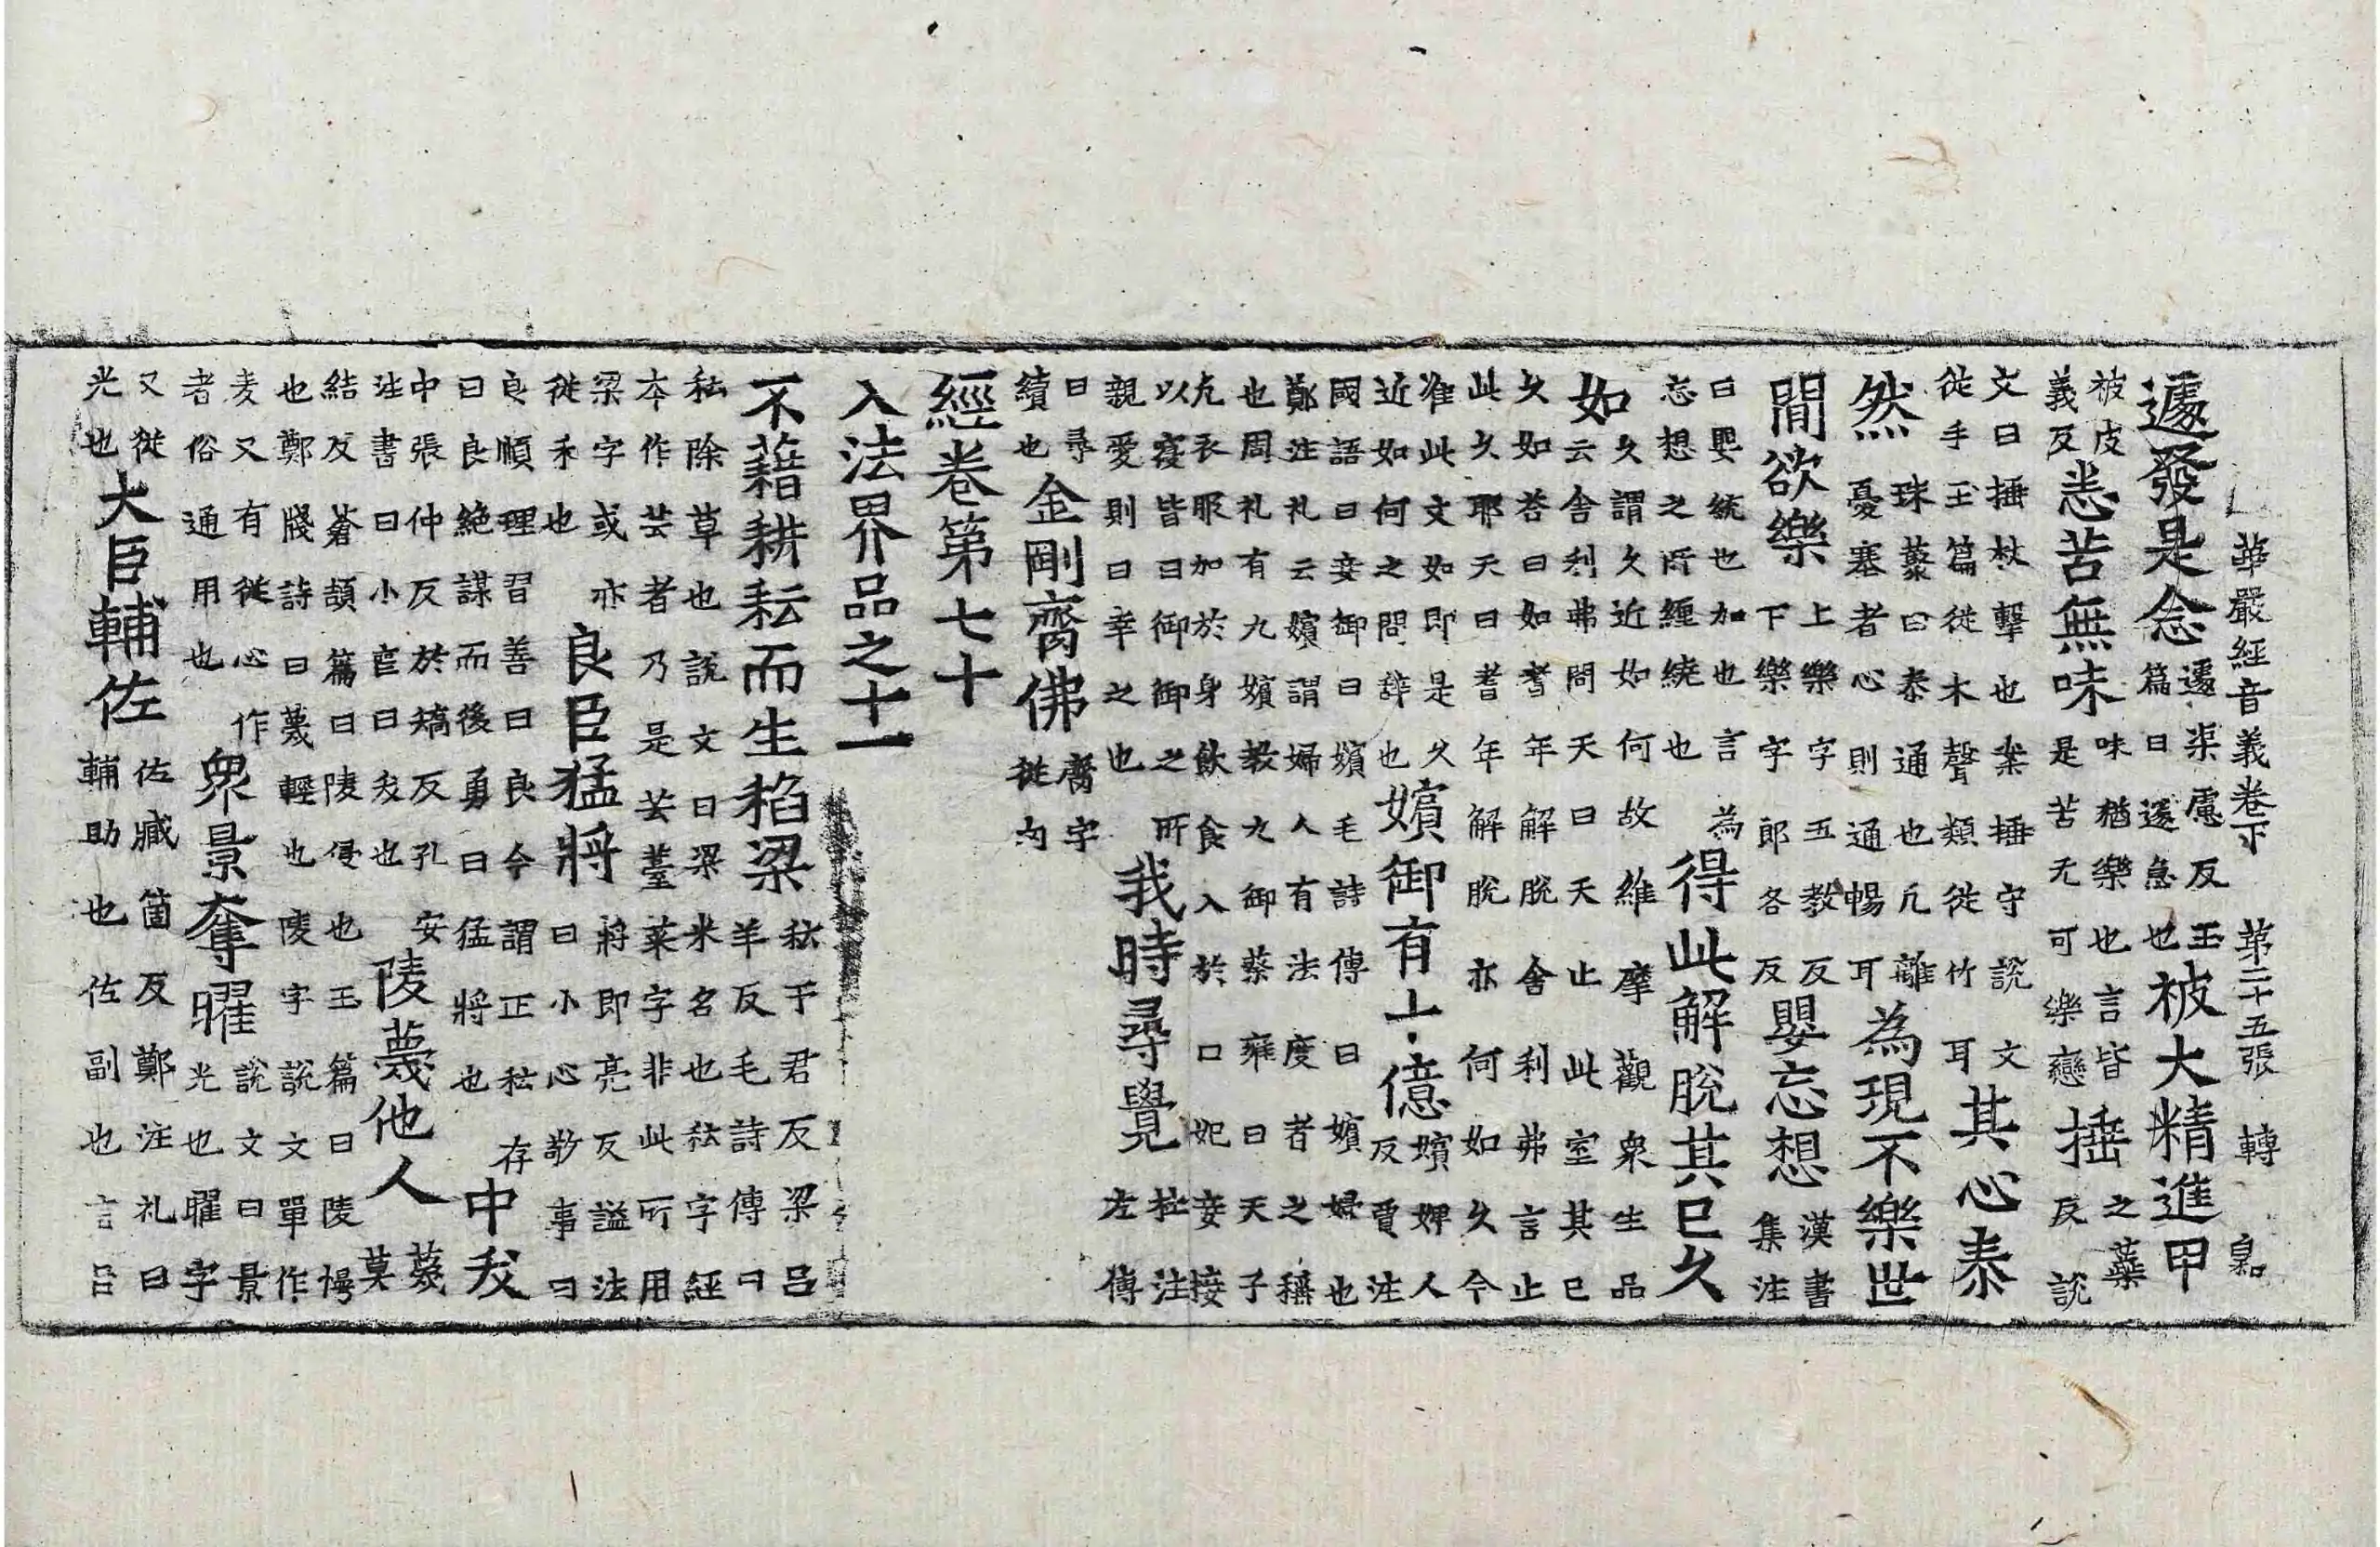 華嚴經音義卷下 第二十五張 轉
遽發是念遽渠慮反玉篇曰遽急也被大精進甲
被皮義反恚苦無味味猶樂也言皆是苦无可樂戀捶之蘂反說
文曰捶杖擊也桒捶守說文從手玉篇從木聲類從竹耳其心泰
然珠藂曰泰通也凢離憂塞者心則通暢耳為現不樂世
間欲樂上樂字五教反下樂字郎各反嬰忘想漢書集注
曰嬰統也加也言為忘想之所經繞也得此解脫其已久
如久謂久近如何故維摩觀衆生品云舍利弗問天曰天止此室其已
久如荅曰如耆年解脫舍利弗言止此久耶天曰耆年解脫亦何如久今
准此文如即是久近如何之問辞也嬪御有十億嬪婢人反賈注
國語曰妾御曰嬪毛詩傳曰嬪婦也鄭注礼云嬪謂婦人有法度者之稱
也周礼有九嬪教九御蔡雍曰天子凢衣服加於身飲食入於口妃妾接
以寑皆曰御御之所親愛則曰幸之也我時尋覺杜注左傳
曰尋續也金剛齎佛齎字從內
經卷第七十
入法界品之十一
不藉耕耘而生稻梁秐于君反梁呂羊反毛詩傳曰
秐除草也說文曰梁米名也秐字經本作芸者乃是芸薹菜字非此所用
梁字或亦從禾也良臣猛將將即亮反謚法曰小心敬事曰
良順理習善曰良今謂正秐存曰良絶謀而後勇曰猛將也中夭
中張仲反於矯反孔安注書曰小官曰夭也陵蔑他人蔑莫
結反蒼頡篇曰陵侵也玉篇曰陵慢也鄭牋詩曰蔑輕也陵字說文單作
夌又有從心作者俗通用也衆景奪曜說文曰景光也曜字
又從光也大臣輔佐佐臧箇反鄭注礼曰輔助也佐副也言吕